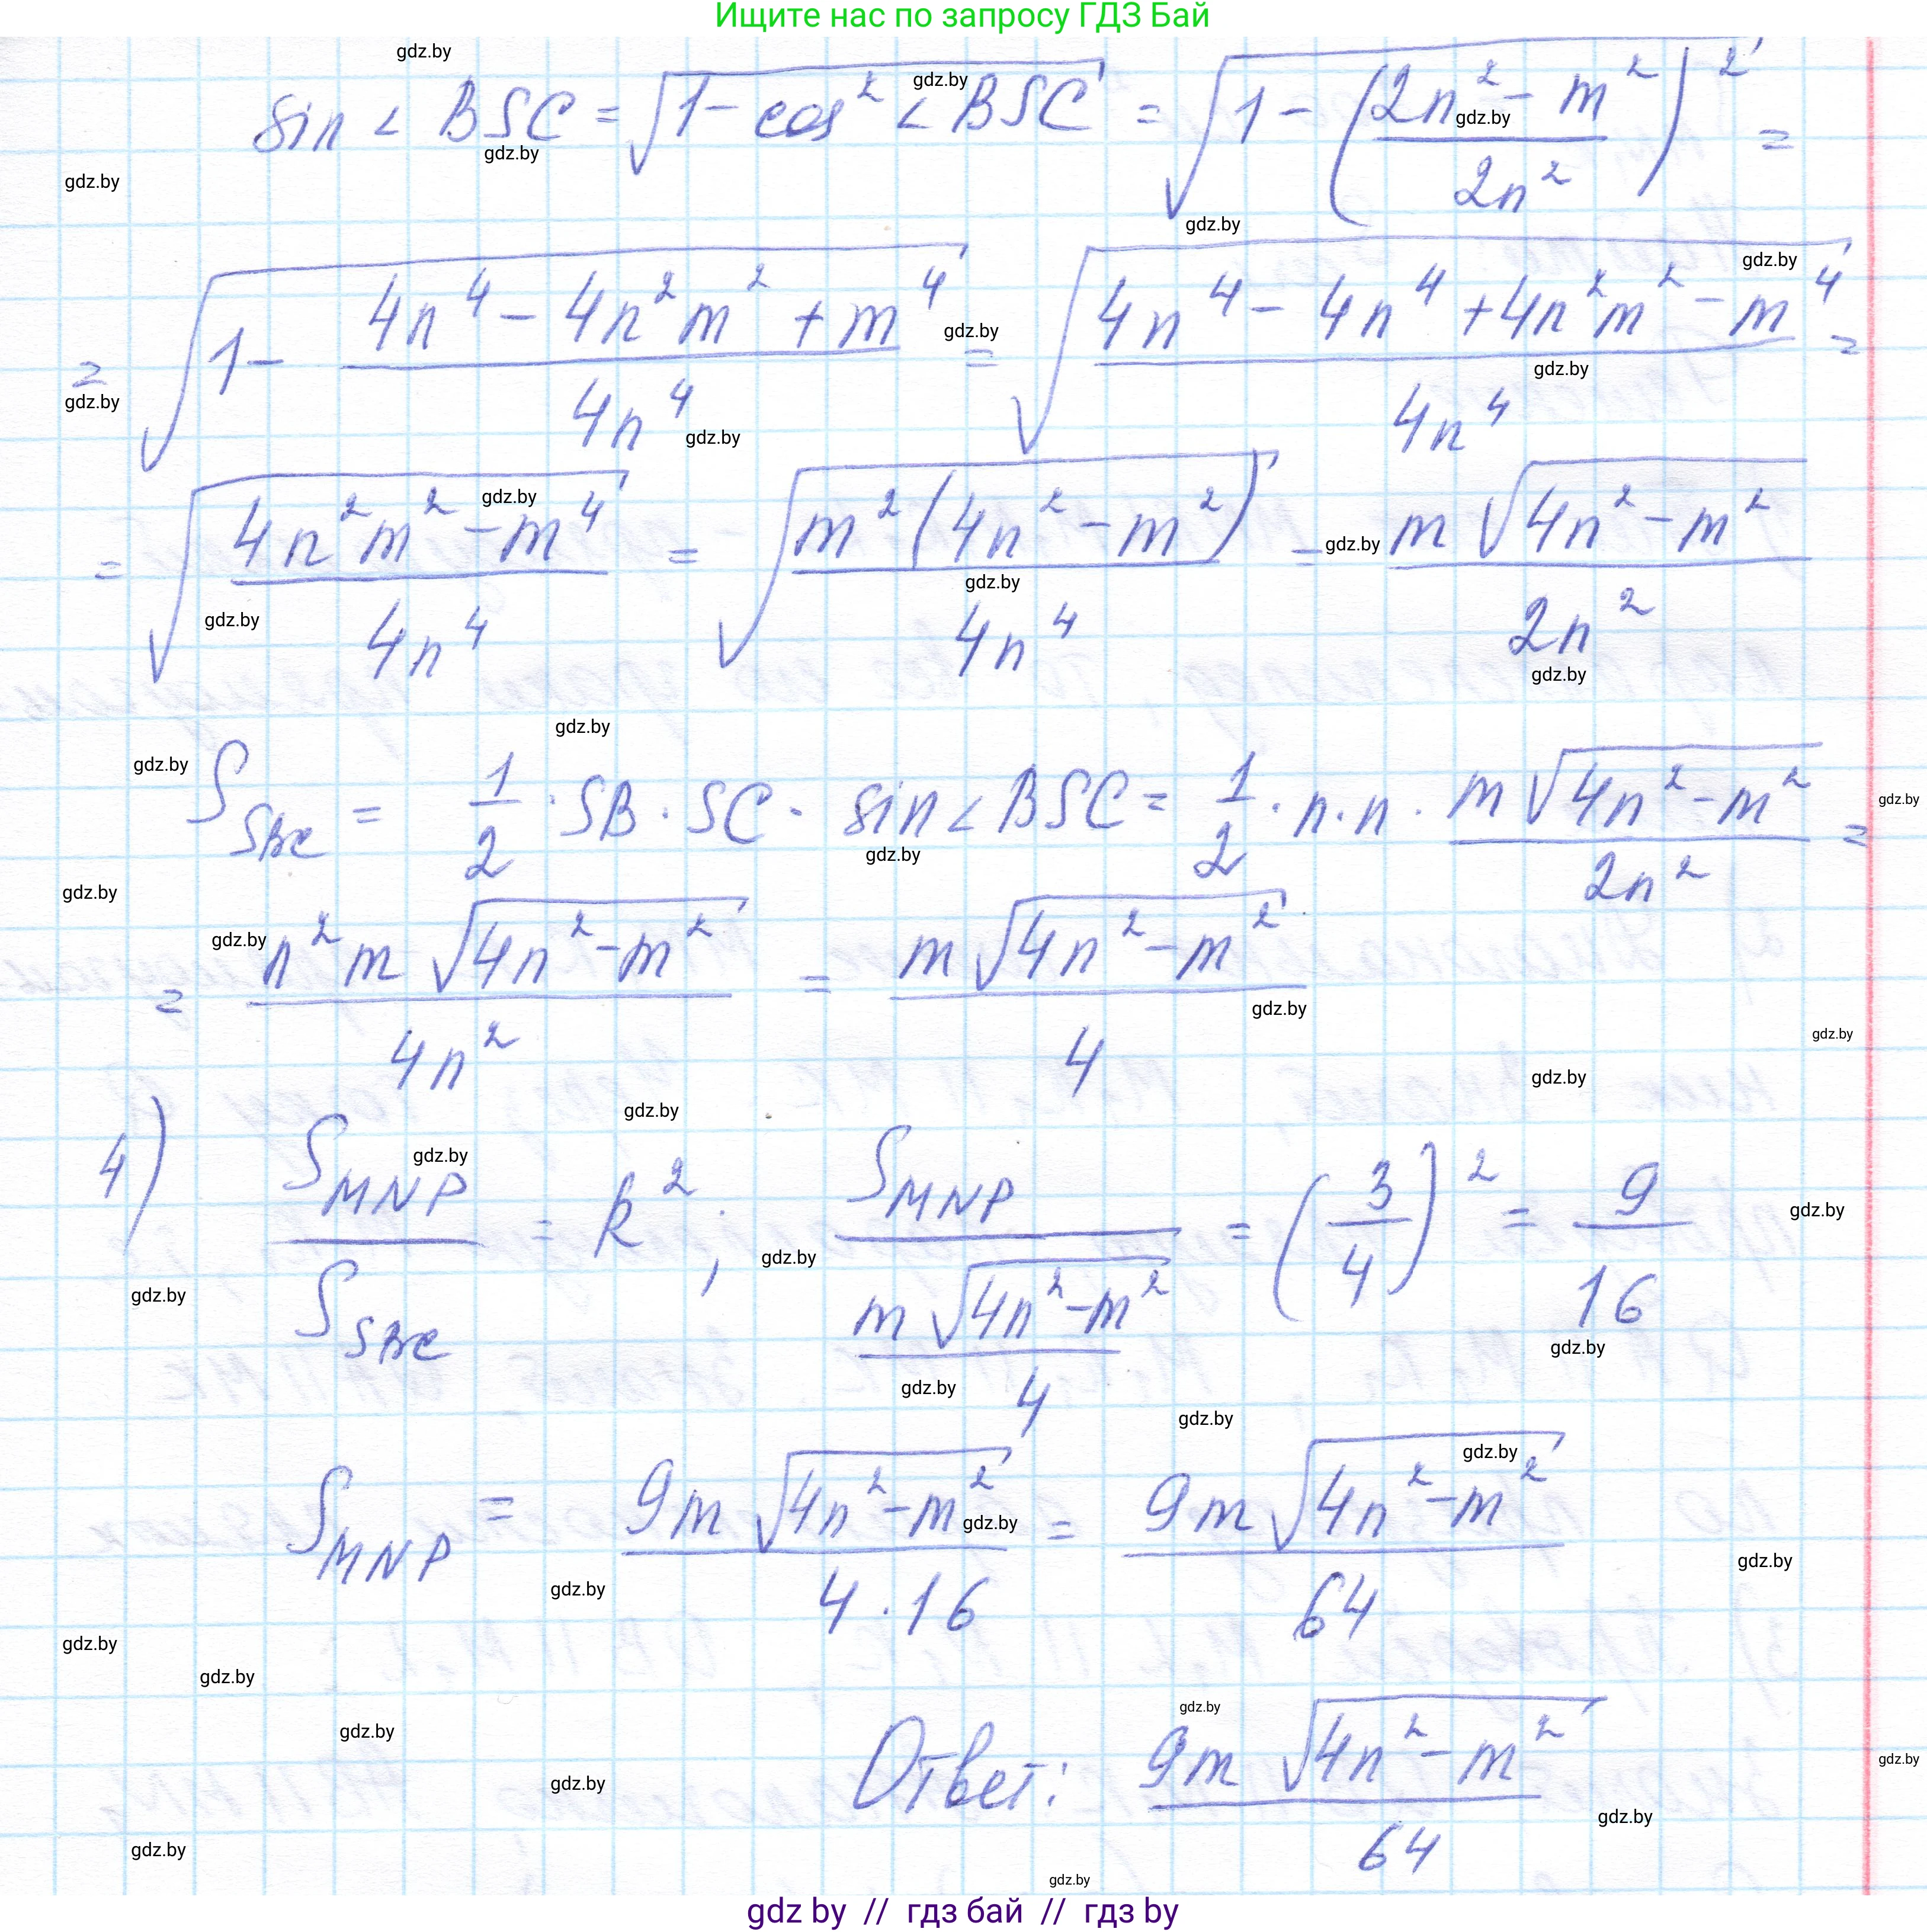 Ищите нас по запросу ГДЗ Бай
sin < BSC = √(1 - cos² < BSC) = √(1 - ((2n² - m²)/(2n²))²) =
= √(1 - (4n⁴ - 4n²m² + m⁴)/(4n⁴)) = √((4n⁴ - 4n⁴ + 4n²m² - m⁴)/(4n⁴)) =
= √((4n²m² - m⁴)/(4n⁴)) = √((m²(4n² - m²))/(4n⁴)) = (m√(4n² - m²))/(2n²)
S_SBC = 1/2 · SB · SC · sin < BSC = 1/2 · n · n · (m√(4n² - m²))/(2n²) =
= (n²m√(4n² - m²))/(4n²) = (m√(4n² - m²))/4
4) S_MNP/S_SBC = k²; S_MNP/((m√(4n² - m²))/4) = (3/4)² = 9/16
S_MNP = (9m√(4n² - m²))/(4 · 16) = (9m√(4n² - m²))/64
Ответ: (9m√(4n² - m²))/64
gdz by // гдз бай // гдз by